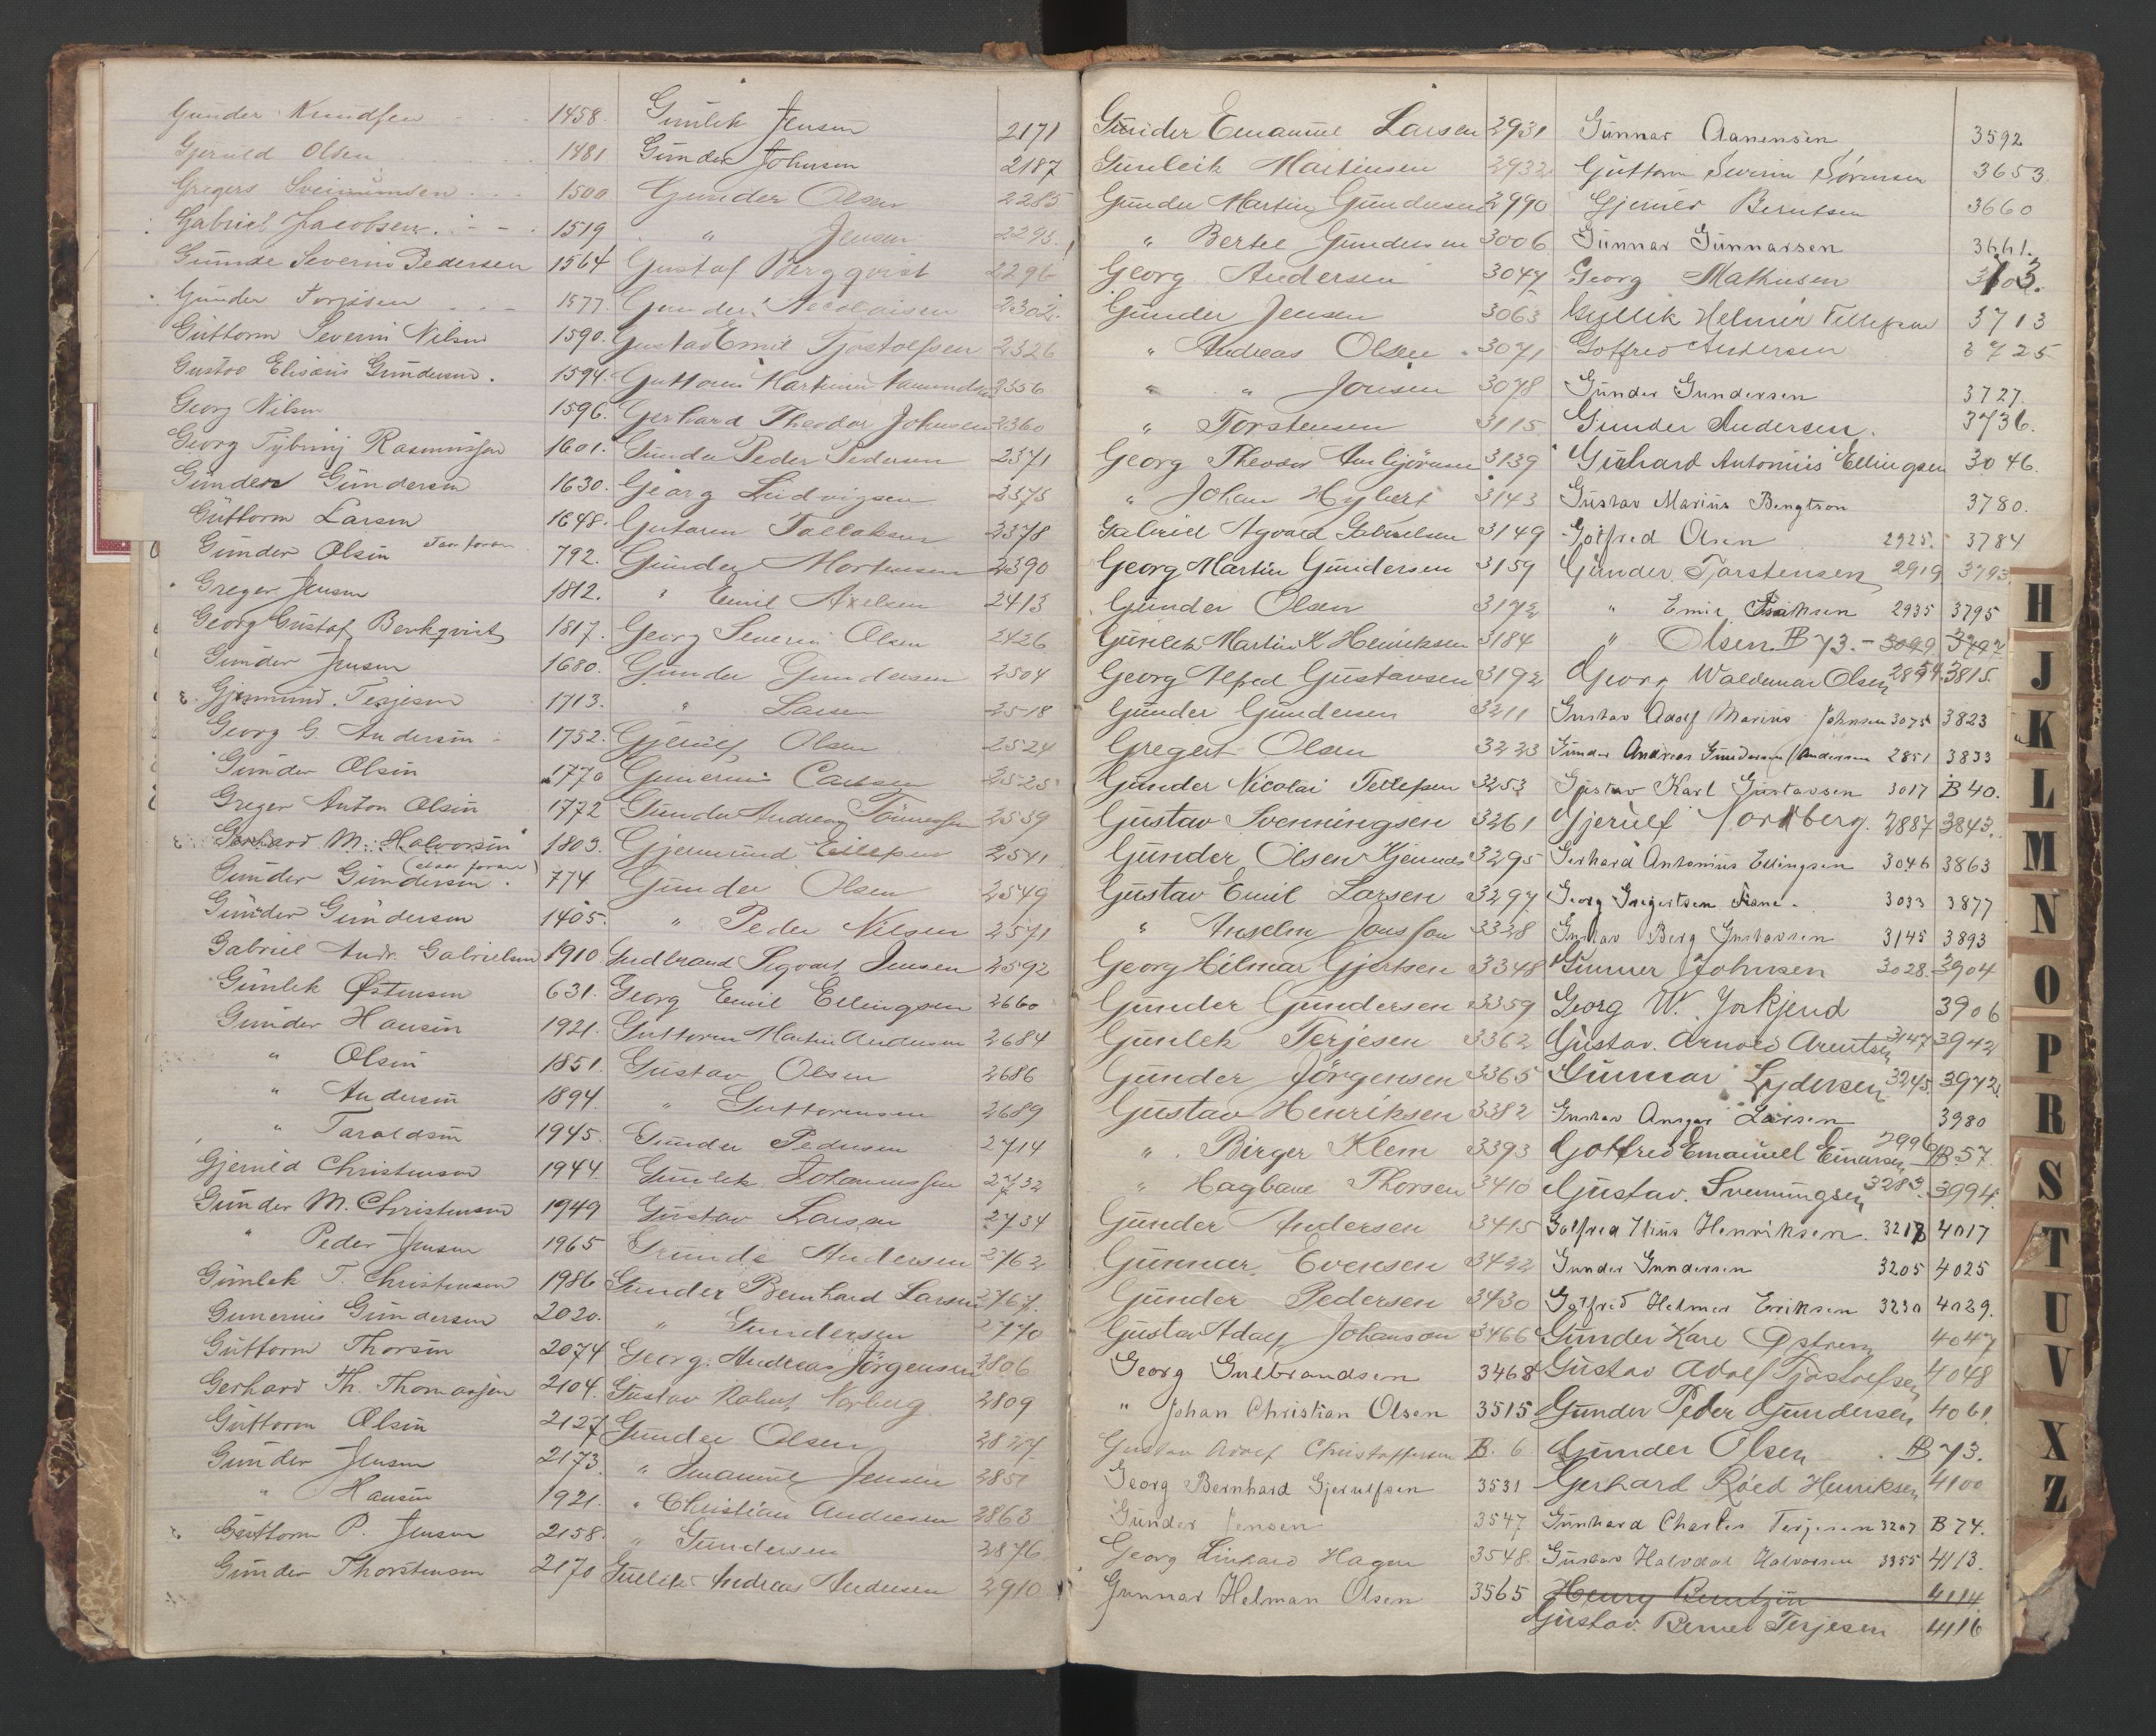 Gunder Knudsen 1458.
Gjeruld Olsen 1481
Gregers Sveinunsen 1500
Gabriel Jacobsen. 1519
Gunde Severin Pedersen 1564
Gunder Torjusen 1577.
Guttorm Severin Nilsen 1590.
Gustav Elisæus Gundersen. 1594.
Georg Nilsen 1596.
Georg Tybring Rasmussen 1601.
Gunder Gundersen 1630.
Guttorm Larsen 1648.
Gunder Olsen 792.
Greger Jensen 1812.
Georg Gustaf Berkqvist 1817.
Gunder Jensen 1680.
Gjermund Terjesen 1713.
Georg G. Andersen 1752.
Gunder Olsen 1770
Greger Anton Olsen 1772
Gerhard M. Halvorsen 1803.
Gunder Gundersen. 774
Gunder Gundersen 1405.
Gabriel Andr. Gabrielsen 1910
Gunlek Østensen 631.
Gunder Hansen 1921.
" Olsen 1851.
" Andersen 1894.
" Taraldsen 1945.
Gjeruld Christensen 1944.
Gunder M. Christensen 1949
" Peder Jensen 1965
Gunlek T. Christensen 1986
Gunerius Gundersen 2020.
Guttorm Thorsen 2074
Gerhard Th. Thomassen 2104.
Guttorm Olsen 2127
Gunder Jensen 2173.
" Hansen 1921.
Guttorm P. Jensen 2158.
Gunder Thorstensen 2170
Gunlek Jensen 2171
Gunder Johnsen 2187
Gunder Olsen 2285
" Jensen 2295.
Gustaf Bergqvist 2296
Gunder Nicolaisen 2302.
Gustav Emil Tjøstolfsen 2326
Guttorm Martinius Aamundsen 2356
Gerhard Theodor Johnsen 2360
Gunder Peder Pedersen 2371
Georg Ludvigsen 2375
Gutorm Tallaksen 2378
Gunder Mortensen 2390
" Emil Axelsen 2413
Georg Severin Olsen 2426
Gunder Gundersen 2504
" Larsen 2518
Gjerulf Olsen 2524
Gunerius Carlsen 2525
Gunder Andreas Tönnessen 2539
Gjermund Eilefsen 2541
Gunder Olsen 2549
" Peder Nilsen 2571
Gudbrand Sigvart Jensen 2592
Georg Emil Ellingsen 2660
Guttorm Martin Andersen 2684
Gustav Olsen 2686
" Guttormsen 2689
Gunder Pedersen 2714
Gunlek Johannessen 2732
Gustav Larsen 2734
Gunde Andersen 2762
Gunder Bernhard Larsen 2767.
" Gundersen 2770
Georg Andreas Jörgensen 2806
Gustav Robert Norberg 2809
Gunder Olsen 2827
" Emanuel Jensen 2851
" Christian Andersen 2863
" Gundersen 2876
Gullik Andreas Andersen 2910
Gunder Emanuel Larsen 2931
Gunleik Martinsen 2932
Gunder Martin Gundersen 2990
" Bertel Gundersen 3006
Georg Andersen 3047
Gunder Jensen 3063
" Andreas Olsen 3071
" " Jonsen 3078
" Torstensen 3115
Georg Theodor Ambjörnsen 3139
" Johan Hybert 3143
Gabriel Agvard Gabrielsen 3149
Georg Martin Gundersen 3159
Gunder Olsen 3172
Gunlek Martin K Henriksen 3184
Georg Alfred Gustavsen 3192
Gunder Gundersen 3211
Gregert Olsen 3223
Gunder Nicolai Tellefsen 3253
Gustav Svenningsen 3261
Gunder Olsen Kjennes 3295
Gustav Emil Larsen 3297
" Anselm Jonsson 3328
Georg Hilmar Gjertsen 3348
Gunder Gundersen 3359
Gunlek Terjesen 3362
Gunder Jörgensen 3365
Gustav Henriksen 3382
" Birger Klem 3393
" Hagbart Thorsen 3410
Gunder Andersen 3415
Gunnar Evensen 3422
Gunder Pedersen 3430
Gustav Adolf Johanson 3466
Georg Gulbrandsen 3468
" Johan Christian Olsen 3515
Gustav Adolf Christoffersen B. 6
Georg Bernhard Gjerulfsen 3531
Gunder Jensen 3547
Georg Linhard Hagen 3548.
Gunnar Helman Olsen 3565
Gunnar Aanensen 3592
Guttorm Severin Sörensen 3653
Gjeruls Berntsen 3660
Gunnar Gunnarsen 3661.
Georg Mathisen
Gullik Helmer Tellefsen 3713
Gotfred Andersen 3725
Gunder Gundersen 3727.
Gunder Andersen. 3736.
Gerhard Antonius Ellingsen 3046.
Gustav Marius Bengtson 3780.
Gotfred Olsen 2925. 3784
Gunder Torstensen 2919 3793
" Emil Isaksen 2935 3795
" Olsen B 73. - 3099 3797
Georg Waldemar Olsen 2854 3815.
Gustav Adolf Marius Johnsen 3075 3823
Gunder Andreas Gundersen (Andersen 2851 3833
Gustav Karl Gustavsen 3017 B 40.
Gjerulf Nordberg. 2887 3843.
Gerhard Antonius Ellingsen 3046 3863
Georg Gregertsen Fiane. 3033 3877
Gustav Berg Gustavsen 3145 3893
Gunner Johnsen 3028. 3904
Georg W. Jorkjend 3906
Gustav Arnold Arentsen 3147 3942
Gunnar Lydersen 3245. 3972.
Gustav Ansgar Larsen 3980
Gotfred Emanuel Einersen 2996 B 57.
Gustav. Svenningsen 3283. 3994.
Gotfred Elius Henriksen. 3218 4017
Gunder Gundersen 3205 4025
Gotfred Helmer Eriksen 3230 4029.
Gunder Kare Østrem 4047
Gustav Adolf Tjøstolfsen 4048
Gunder Peder Gundersen 4061.
Gunder Olsen B 73.
Gerhard Röed Henriksen 4100
Gunhard Charles Terjesen 3207 B 74.
Gustav Halvdal Halvorsen 3355 4113.
Henry Berntzen 4114
Gustav. Berner Terjesen 4116
H
J
K
L
M
N
O
P
R
S
T
U
V
X
Z